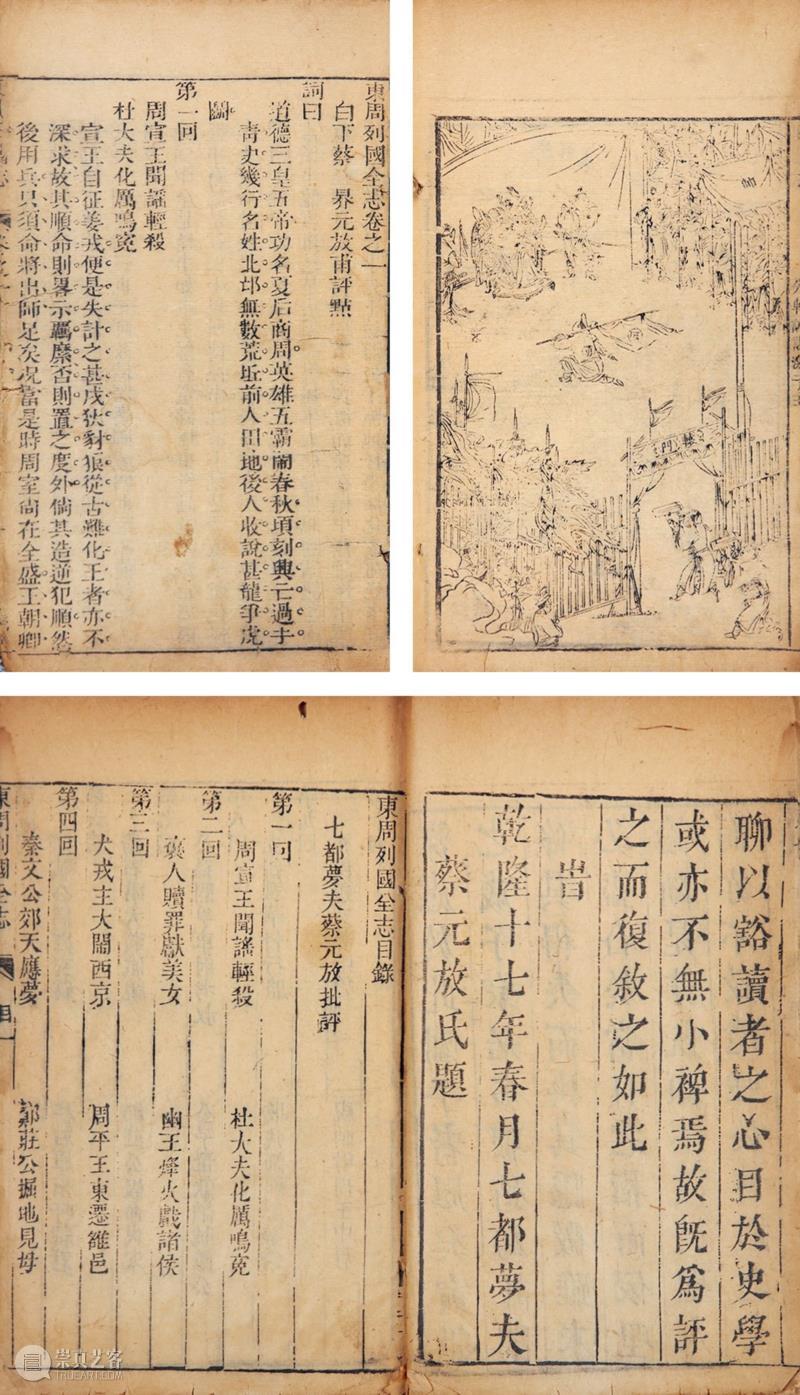 東周列國全志卷之一
白下蔡 昇元放甫評點
詞曰
道德三皇五帝功名夏后商周英雄五霸鬧春秋頃刻興亡過手
青史幾行名姓北邙無數荒坵前人田地後人收說甚龍爭虎
鬬
第一回
周宣王聞謠輕殺
杜大夫化厲鳴冤
宣王自征姜戎便是失計之甚戎狄豺狼從古難化王者亦不
深求故其順命則畧示羈縻否則置之度外倘其造逆犯順然
後用兵只須命將出師足矣况當是時周室尚在全盛王朝卿
聊以豁讀者之心目於史學
或亦不無小裨焉故既爲評
之而復敘之如此
旹
乾隆十七年春月七都夢夫
蔡元放氏題
東周列國全志目錄
七都夢夫蔡元放批評
第一回
周宣王聞謠輕殺 杜大夫化厲鳴冤
第二回
褒人贖罪獻美女 幽王烽火戲諸侯
第三回
犬戎主大鬧西京 周平王東遷雒邑
第四回
秦文公郊天應夢 鄭莊公掘地見母
東周列國全志
目
崇真艺客
TRUEART.COM